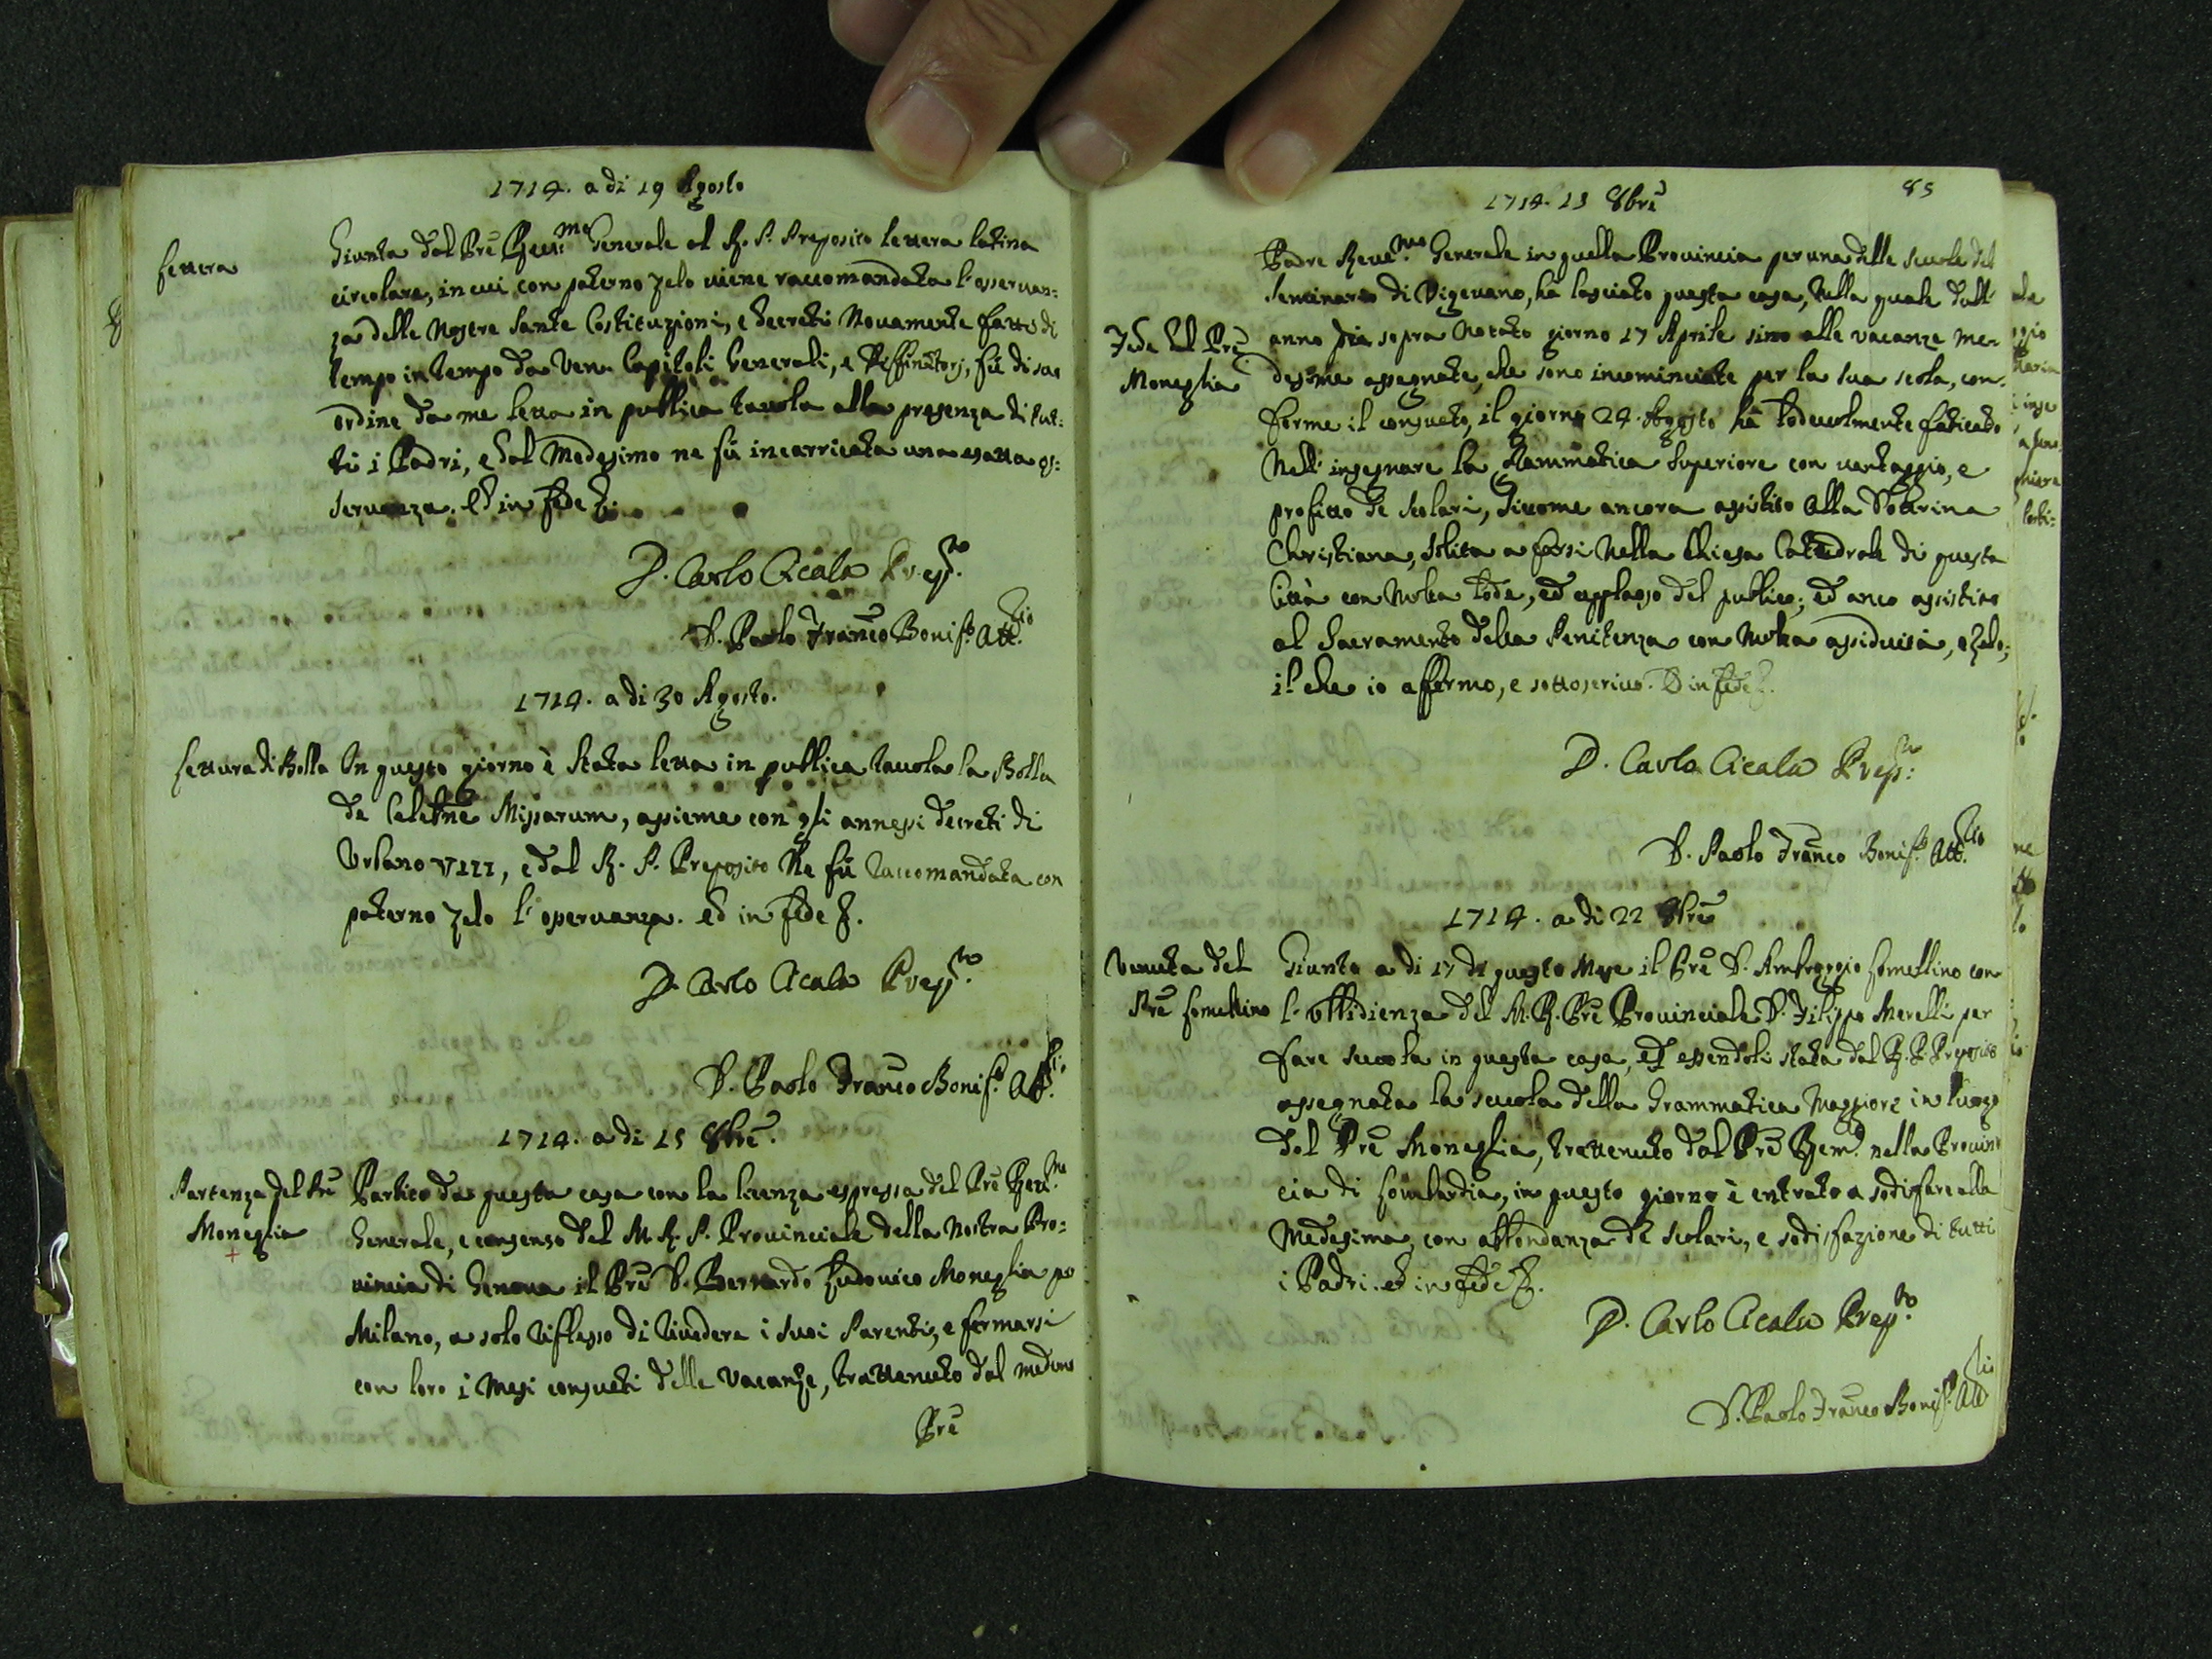 1714. a di 19 Agosto
Lettera
Giunta dal Pre Reu.mo Generale al R. P. Preposito lettera latina
circolare, in cui con paterno zelo uiene raccomandata l'osseruan=
za delle Nostre Sante Costituzioni, e decreti Nouamente fatti di
tempo in tempo da Ven. Capitoli Generali, e Diffinitorj, fù di suo
ordine da me letta in publica tauola alla presenza di tut=
ti i Padri, e dal Medesimo ne fù incarricata una esatta os=
seruanza. Ed in fede &.
D. Carlo Cicala Prep.to
D. Paolo Franco Bonif.o Att.rio
1714. a di 30 Agosto.
Lettura di Bolla
In questo giorno è stata letta in publica tauola la Bolla
de Celebne Missarum, assieme con gli annessi decreti di
Urbano VIII, e dal R. P. Preposito Ne fù raccomandata con
paterno zelo l'osseruanza. ed in fede &.
D. Carlo Cicala Prep.to
D. Paolo Franco Bonif.o Att.
1714. a di 15 8bre.
Partenza del Pre
Moneglia
Partito da questa casa con la licenza espressa del Pre Reu.mo
Generale, e consenso del M. R. P. Prouinciale della Nostra Pro=
uincia di Genoua il Pre D. Bernardo Ludouico Moneglia per
Milano, a solo riflesso di riuedere i suoi Parenti, e fermarsi
con loro i Mesi consueti delle Vacanze, trattenuto dal medmo
Pre
85
1714. 15 8bre
Padre Reue.mo Generale in quella Prouincia per una delle scuole del
Seminario di Vigeuano, hà lasciato questa casa, nella quale dall'
Fede del Pre
Moneglia
anno sopra Notato giorno 17 Aprile sino alle vacanze me=
desime assegnate, che sono incominciate per la sua scola, con=
forme il consueto, il giorno 24. Agosto hà lodeuolmente faticato
Nell'insegnare la Grammatica Superiore con uantaggio, e
profitto de Scolari, siccome ancora assistito alla Dottrina
Christiana, solita a farsi Nella Chiesa Catedrale di questa
Città con Molta lode, ed applauso del publico; ed anco assistito
al Sacramento della Penitenza con Molta assiduità, e zelo;
il che io affermo, e sottoscriuo. Ed in fede &.
D. Carlo Cicala Prep.to
D. Paolo Franco Bonif.o Att.rio
1714. a di 22 8bre
Venuta del
Pre Lomellino
Giunto a di 17 di questo Mese il Pre D. Ambroggio Lomellino con
l'obbidienza del M. R. Pre Prouinciale D. Filippo Merelli per
fare scuola in questa casa, ed essendoli stata dal R. P. Preposito
assegnata la scuola della Grammatica Maggiore in luogo
del Pre Moneglia, trattenuto dal Pre Gen. nella Prouin
cia di Lombardia, in questo giorno è entrato a sodisfare alla
Medesima, con abbondanza de Scolari, e sodisfazione di tutti
i Padri. ed in fede &.
D. Carlo Cicala Prep.to
D. Paolo Franco Bonif.o Att.rio